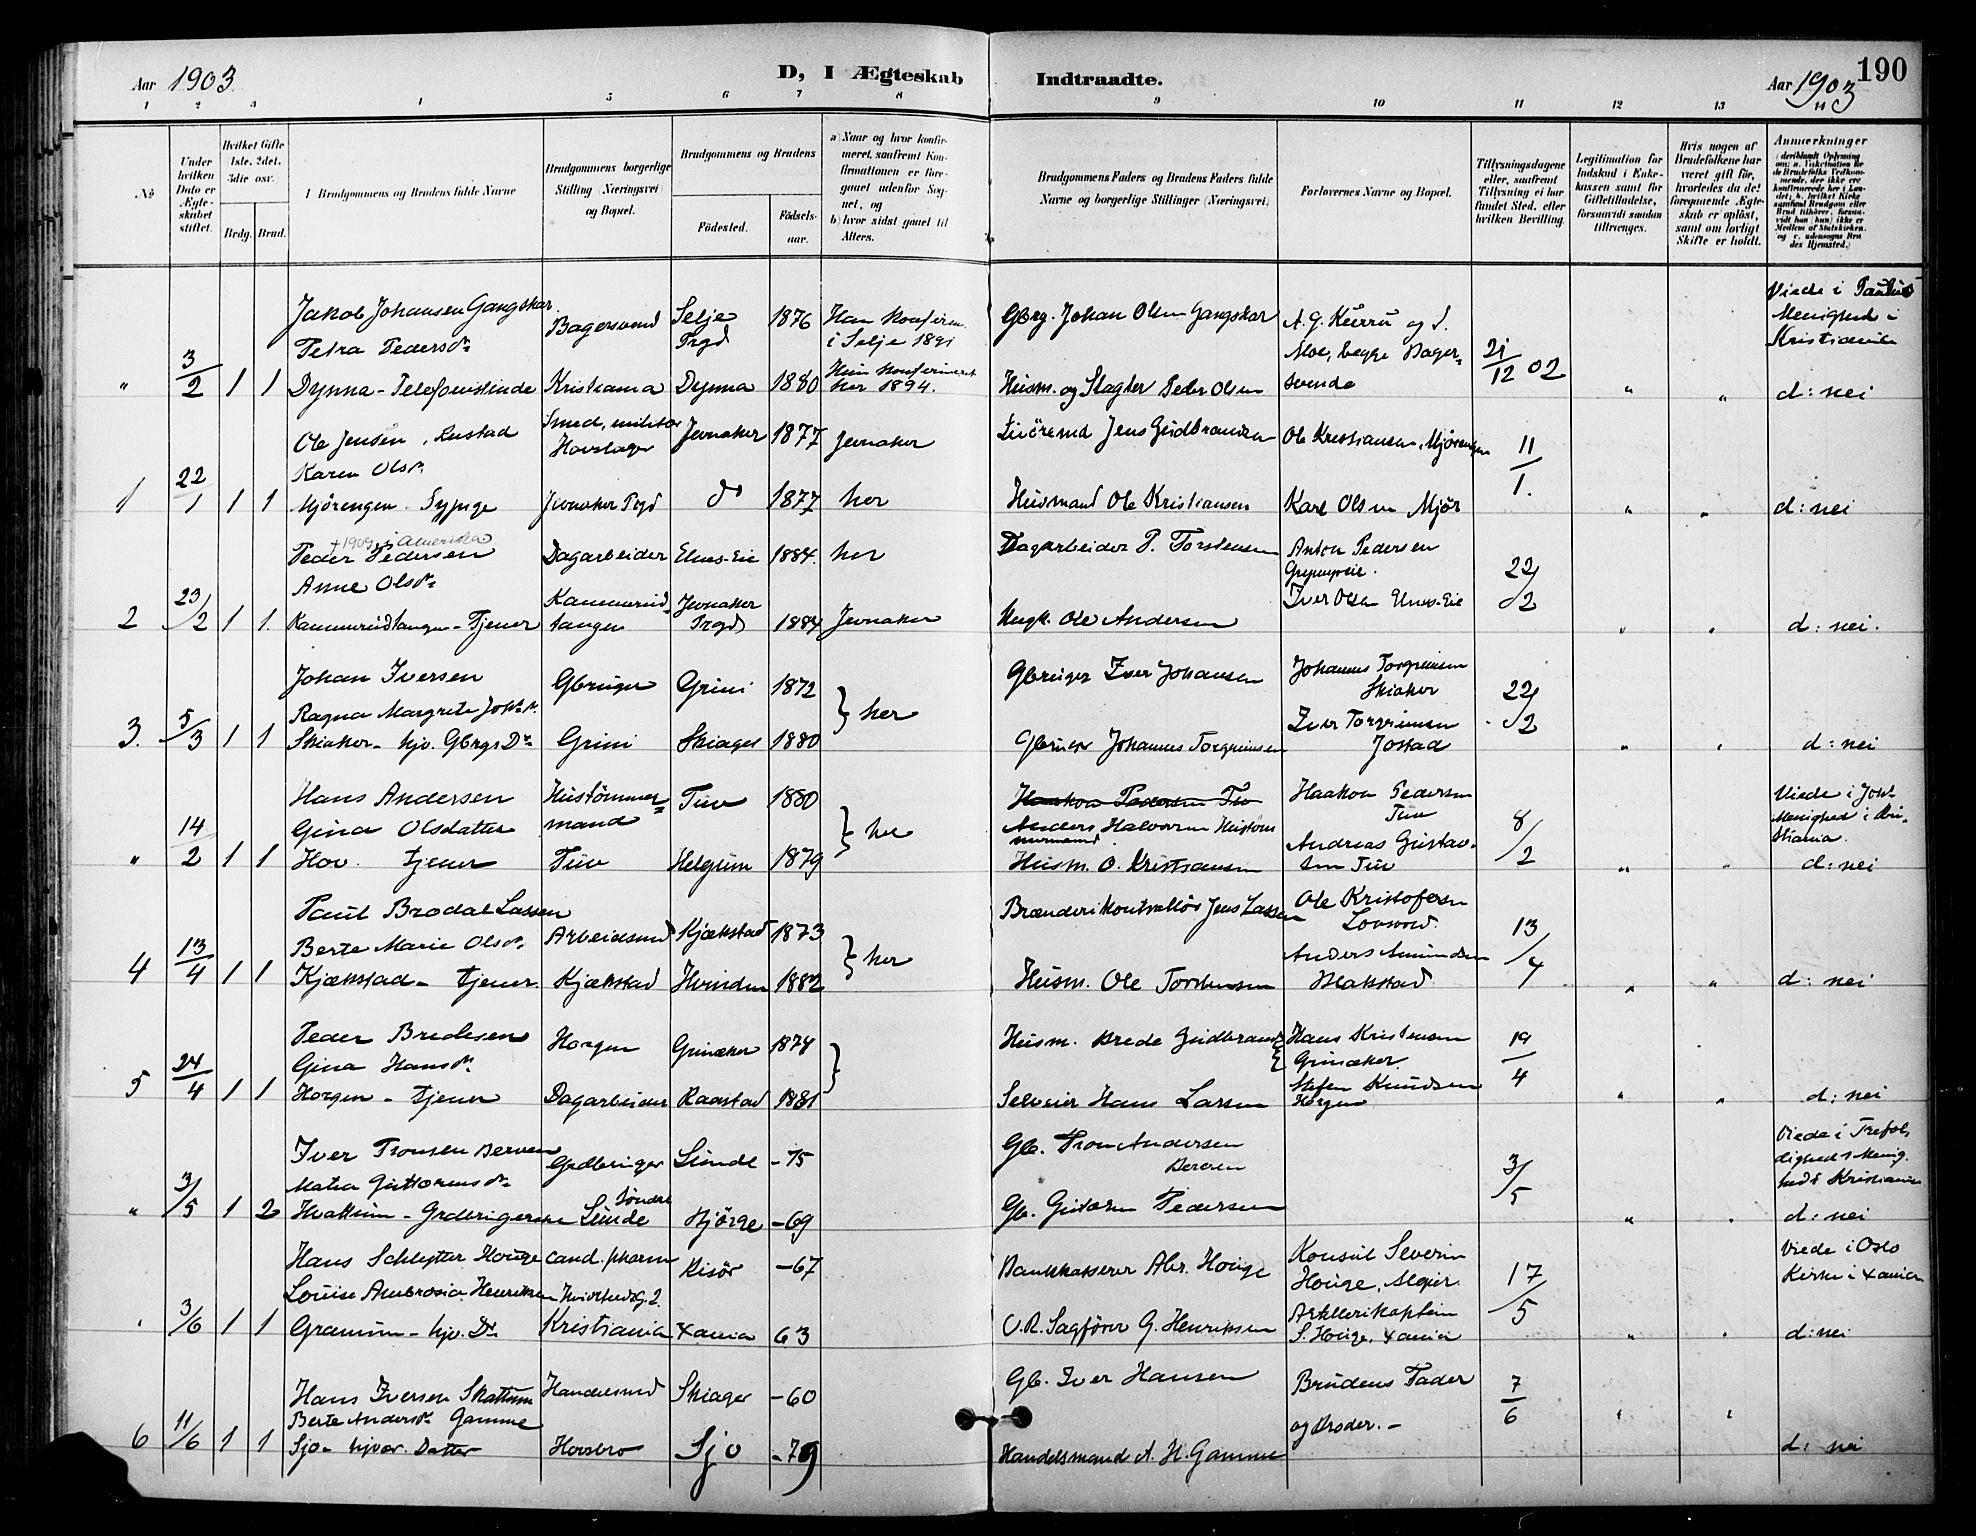 190
Aar 1903
D, I Ægteskab
Indtraadte.
Aar 1903
1 2 3 4 5 6 7 8 9 10 11 12 13 14
№
Under hvilken Dato er Ægteskabet stiftet.
Hvilket Gifte 1ste, 2det, 3die osv.
Brdg. Brud.
Brudgommens og Brudens fulde Navne
Brudgommens borgerlige Stilling (Næringsvei) og Bopæl.
Brudgommens og Brudens
Födested.
Födselsaar.
a) Naar og hvor konfirmeret, saafremt Konfirmationen er foregaaet udenfor Sognet, og
b) hvor sidst gaaet til Alters.
Brudgommens Faders og Brudens Faders fulde Navne og borgerlige Stillinger (Næringsvei).
Forlovernes Navne og Bopæl.
Tillysningsdagene eller, saafremt Tillysning ei har fundet Sted, efter hvilken Bevilling.
Legitimation for Indskud i Enkekassen samt for Giftetilladelse, forsaavidt saadan tiltrænges.
Hvis nogen af Brudefolkene har været gift för, hvorledes da det foregaaende Ægteskab er oplöst, samt om lovligt Skifte er holdt.
Anmærkninger
Jakob Johansen Gangskar Bagersvend Selje Prgd 1876 Han konfirm. i Selje 1891 Gbrg. Johan Olsen Gangskar
A. G. og S. Moe, begge Bagersvende 21/12 02 Viede i Paulus Menighed i Kristiania
Petra Pedersdr
" 3/2 1 1 Dynna - Telefonistinde Kristiania Dynna 1880 Hun konfirmeret her 1894. Husm. og Slagter Peder Olsen " " d: nei
Ole Jensen, Lustad Smed, militær Hovslager Jevnaker 1877 Jevnaker Jens Gudbrandsen Ole Kristiansen, Mjörengen 11/1.
Karen Olsdr
1 22/1 1 1 Mjörengen - Sypige Jevnaker Prgd do 1877 her Husmand Ole Kristiansen Karl Olsen Mjör " " d: nei
+ 1909 i Amerika
Peder Pedersen Dagarbeider 1884. her Dagarbeider P. Torstensen Anton Pedersen 22/2
Anne Olsdr
2 23/2 1 1. - Tjener Jevnaker Prgd 1884 Jevnaker Ungk. Ole Andersen Iver Olsen " " d: nei.
Johan Iversen Gbruger Grini 1872 } her Gbruger Iver Johansen Johannes Torgrimsen Skiaker 22/2
Ragna Margrete Johsdr
3. 5/3 1 1 Skiaker - hjv. Gbrgs Dr Grini Skiager 1880 Gbruger Johannes Torgrimsen Iver Torgrimsen Jostad " " d: nei
Hans Andersen Hustömmermand Tuv 1880 } her Haakon Pedersen Tuv Haakon Pedersen Tuv 8/2 Viede i Joh. Menighed i Kristiania.
Gina Olsdatter Anders Halvorsen Hustömmermand
" 14/2 1 1 Hov. tjener Tuv Helgum 1879 Husm. O. Kristiansen Andreas Gustavsen Tuv " " d: nei
Paul Brodal Lassen Arbeidsmd Kjækstad 1873 } her Brænderikontrollör Jens Lassen Ole Kristofersen 13/4
Berte Marie Olsdr
4 13/4 1 1 Kjækstad - tjener Kjækstad Hvinden 1882 Husm. Ole Torstensen Anders Amundsen Blakstad " " d: nei
Peder Bredesen Horgen Grinaker 1874 } Husm. Brede Gudbrands. Hans Kristensen Grinaker. 19/4
Gina Hansdr
5 24/4 1 1 Horgen - tjener Dagarbeider Raastad 1881 Selveier Hans Larsen Stefen Knudsen Horgen " " d: nei
Iver Tronsen Berven Grdbruger Sunde -75 Gb. Tron Andersen Berven 3/5 Viede i Trefoldigheds Menighed i Kristiania
Matea Guttormsdr
" 3/5 1 2 Hvattum - Söndre Sunde -69 Gb. Pedersen " " d: nei
Hans Schlytter Houge cand. pharm Risör -67 Bankkasserer Abr. Houge Konsul Severin Houge, Algier. 17/5 Viede i Oslo Kirke i Xania
Louise Ambrosia Henriksen
" 3/6 1 1 Granum - hjv. Dr Kristiania Xania 63 O. R. Sagförer G. Henriksen Artillerikaptein S. Houge, Xania " " d: nei
Hans Iversen Skattum Handelsmd Skiager -60 Gb. Iver Hansen Brudens Fader og Broder. - 7/6 " "
Berte Andersdr Gamme
6 11/6 1 1 Sjo - hjvær. Datter Horsbro Sjo -79 Handelsmand A. H. Gamme d: nei